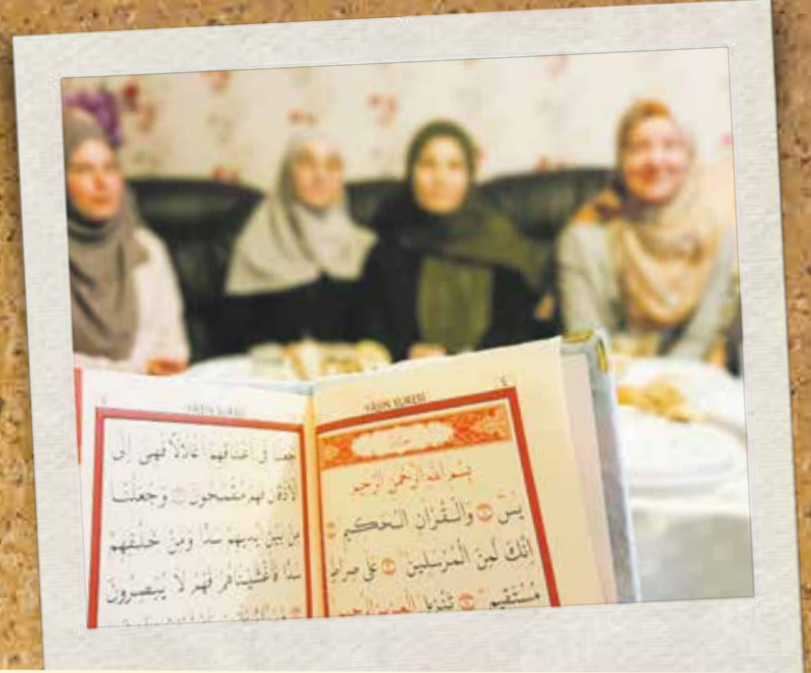 YÂSİN SURESİ
بِسْمِ اللهِ الرَّحْمٰنِ الرَّحِيمِ
يٰسٓ وَالْقُرْاٰنِ الْحَكِيمِ
اِنَّكَ لَمِنَ الْمُرْسَلِينَ عَلٰى صِرَاطٍ
مُسْتَقِيمٍ تَنْزِيلَ الْعَزِيزِ الرَّحِيمِ
YÂSİN SURESİ
جَعَلْنَا فِى اَعْنَاقِهِمْ اَغْلَالًا فَهِىَ اِلَى
الْاَذْقَانِ فَهُمْ مُقْمَحُونَ وَجَعَلْنَا
مِنْ بَيْنِ اَيْدِيهِمْ سَدًّا وَمِنْ خَلْفِهِمْ
سَدًّا فَاَغْشَيْنَاهُمْ فَهُمْ لَا يُبْصِرُونَ